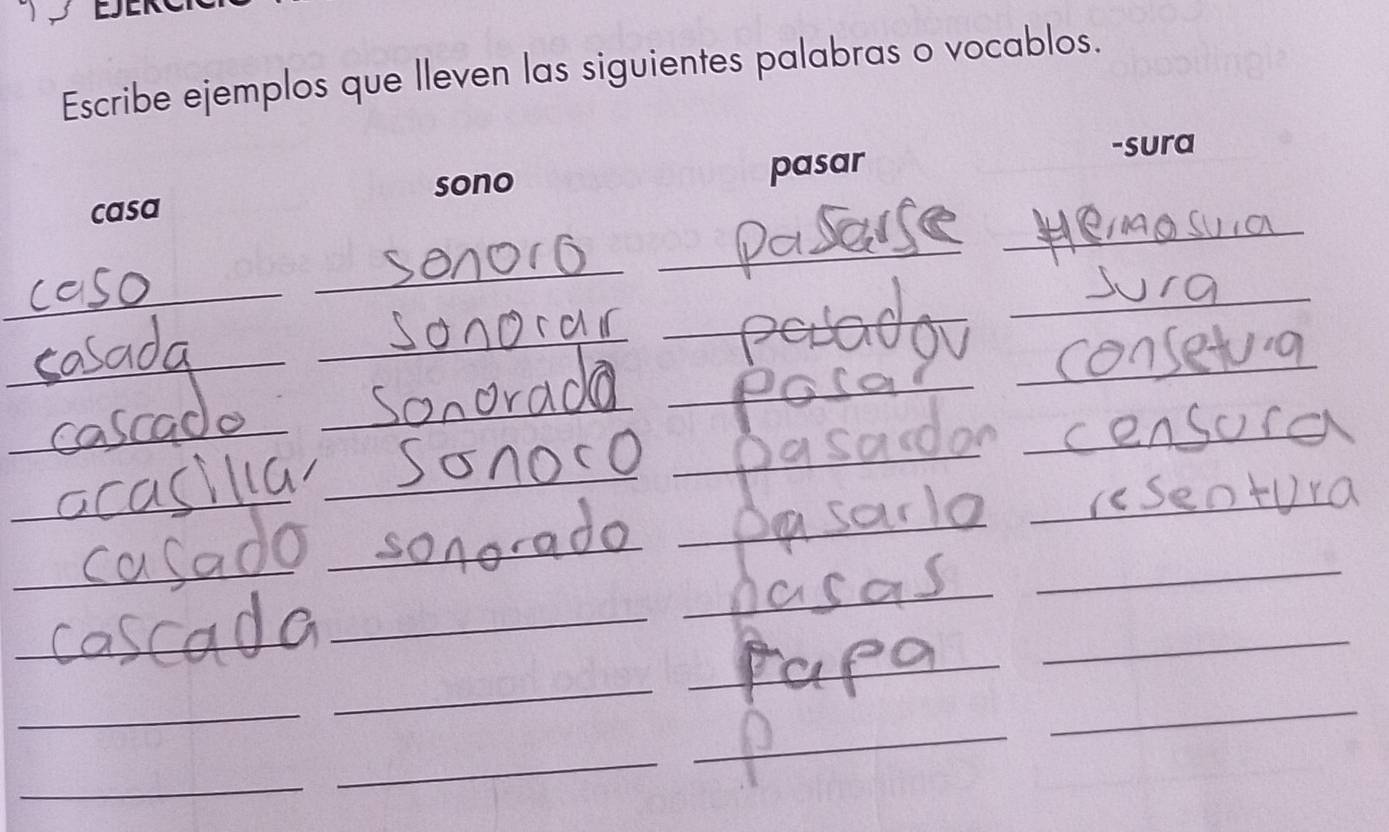 Escribe ejemplos que lleven las siguientes palabras o vocablos.
casa sono pasar -sura
caso sonoro pasarse Hermosura
casada sonorar pasador sura
cascado sonorada pasar consetura
acasillar sonoro pasardor censura
casado sonorado pasarlo resentura
cascada pasas
Papa
P